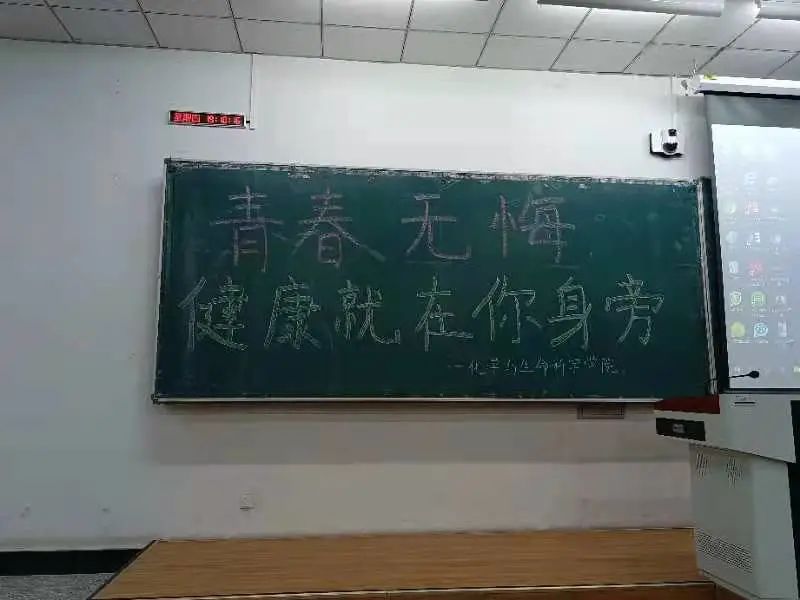 星期四 19:10:16
青春无悔
健康就在你身旁
一化学与生命科学学院